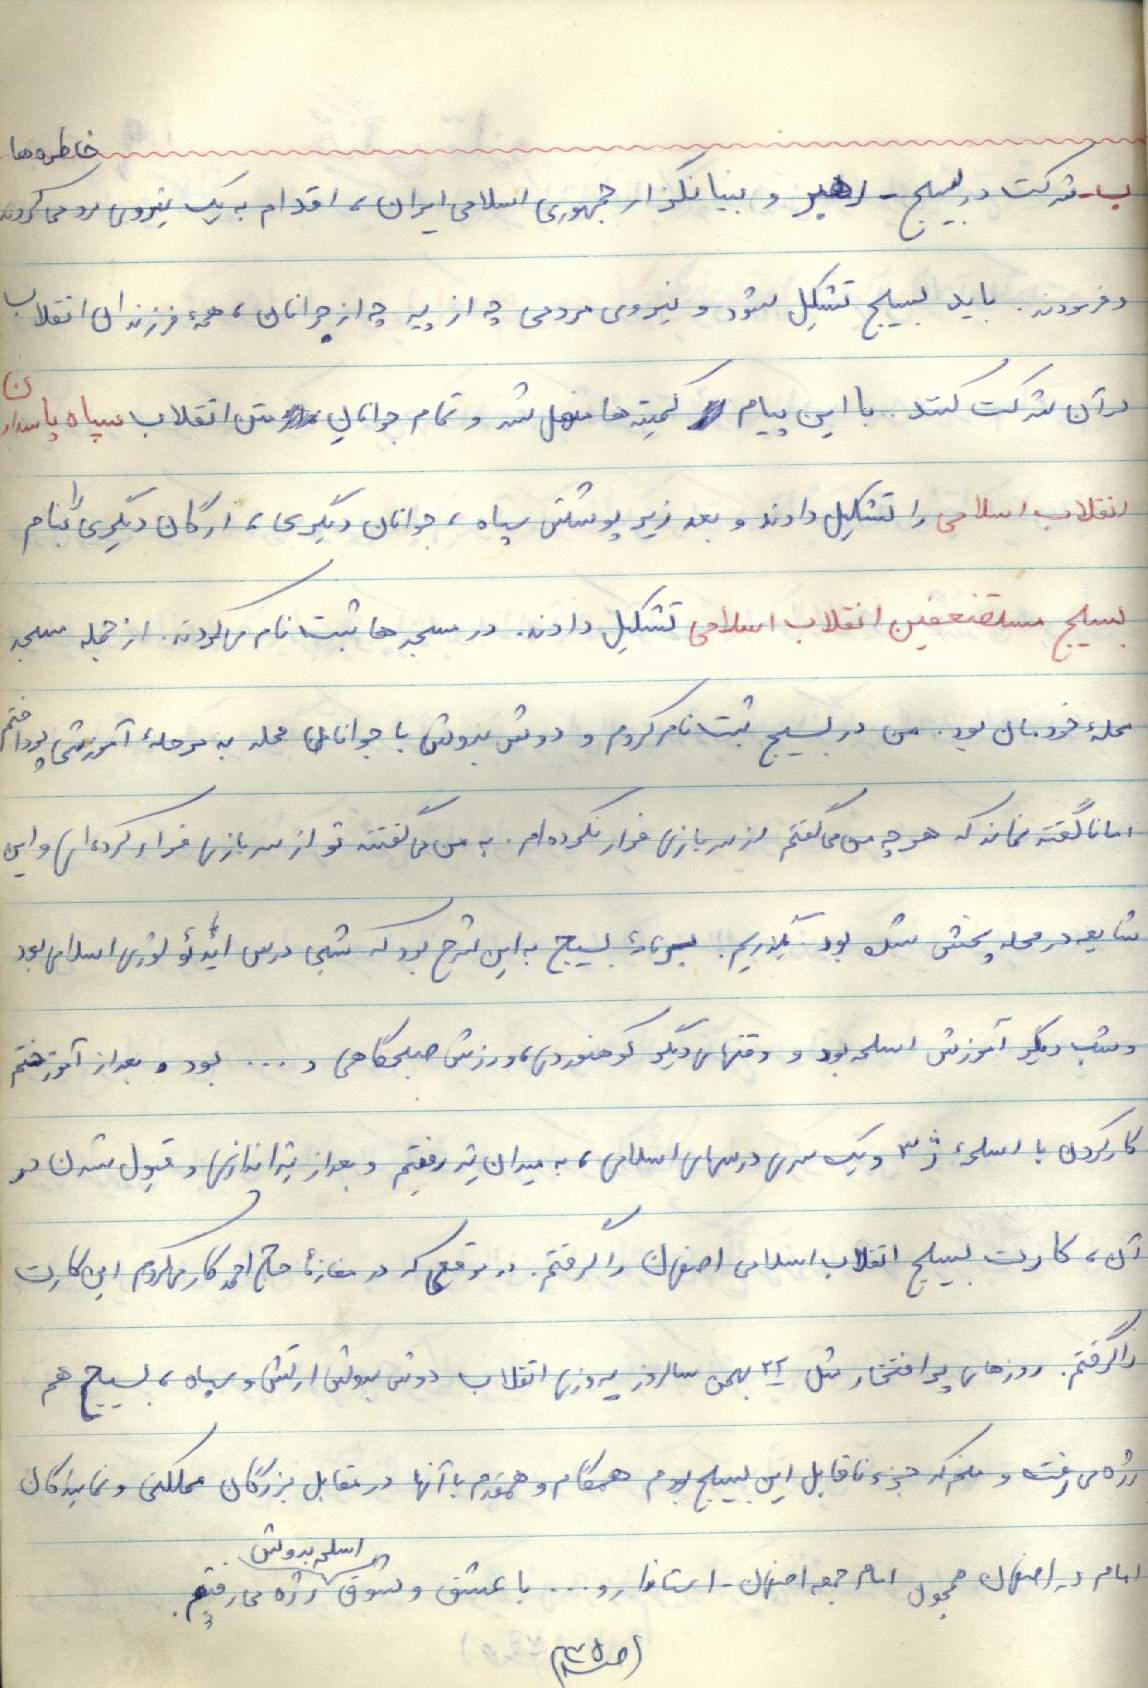 خاطره‌ها
ب- شرکت در بسیج - رهبر و بنیانگذار جمهوری اسلامی ایران، اقدام به یک نیروی مردمی کردند
و فرمودند. باید بسیج تشکیل شود و نیروی مردمی چه از پیر چه از جوانان، همهٔ فرزندان انقلاب
در آن شرکت کنند. با این پیام کمیته‌ها منحل شد و تمام جوانان متن انقلاب سپاه پاسداران
انقلاب اسلامی را تشکیل دادند و بعد زیر پوشش سپاه، جوانان دیگری، ارگان دیگری را بنام
بسیج مستضعفین انقلاب اسلامی تشکیل دادند. در مسجدها ثبت نام میکردند. از جمله مسجد
محلهٔ خودمان بود. من در بسیج ثبت نام کردم و دوش بدوش با جوانان محله به مرحلهٔ آموزشی پرداختم
اما ناگفته نماند که هر چه من می‌گفتم از سربازی فرار نکرده‌ام. به من می‌گفتند تو از سربازی فرار کرده‌ای و این
شایعه در محله پخش شده بود. بگذریم. برنامهٔ بسیج به این شرح بود که شبی درس ایدئولوژی اسلامی بود
و شب دیگر آموزش اسلحه بود و وقتهای دیگر کوهنوردی، ورزش صبحگاهی و ... بود و بعد از آموختم
کار کردن با اسلحهٔ ژ۳ و یک سری درسهای اسلامی، به میدان تیر رفتیم و بعد از تیراندازی و قبول شدن در
آن، کارت بسیج انقلاب اسلامی اصفهان را گرفتم. در موقعی که در مغازهٔ حاج احمد کار میکردم این کارت
را گرفتم. روزهای پر افتخار مثل ۲۲ بهمن سالروز پیروزی انقلاب دوش بدوش ارتش و سپاه، بسیج هم
رژه می‌رفت و منم که جزء ناقابل این بسیج بودم همگام و همقدم با آنها در مقابل بزرگان مملکتی و نمایندگان
امام در اصفهان همچون امام جمعه اصفهان - استاندار و ... با عشق و شوق اسلحه بدوش رژه می‌رفتیم.